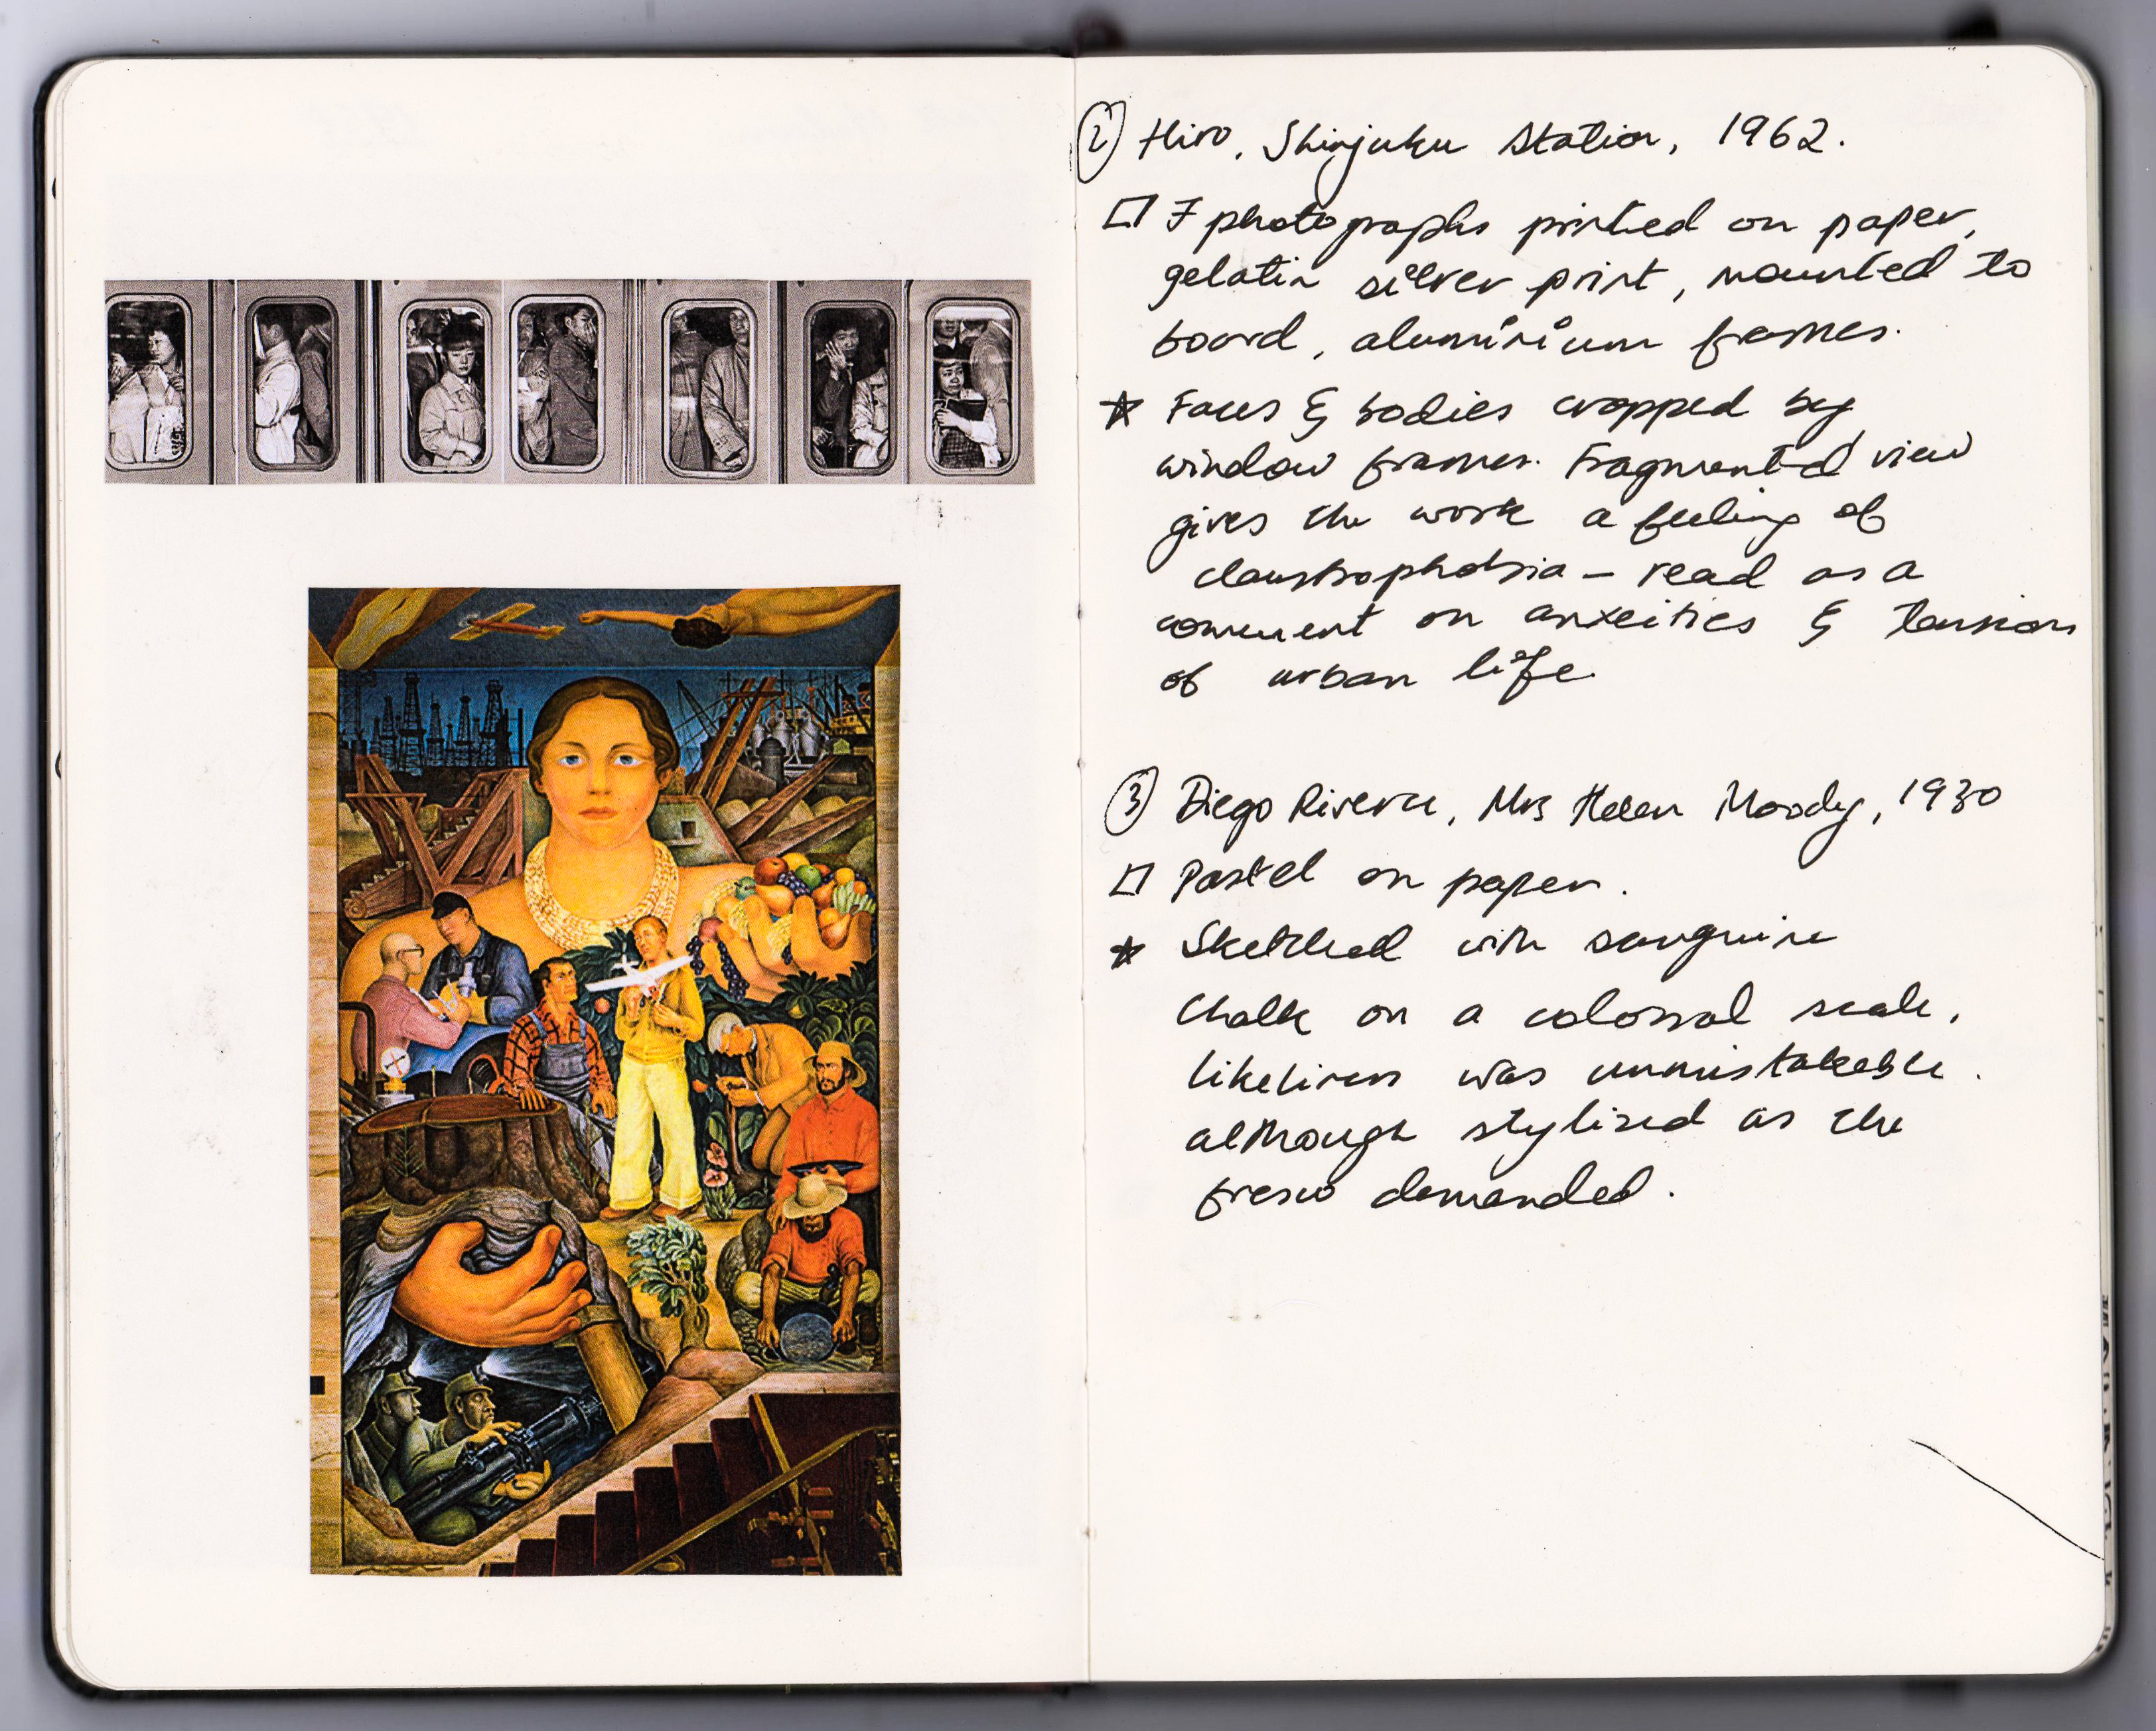 ② Hiro, Shinjuku Station, 1962.
□ 7 photographs printed on paper,
gelatin silver print, mounted to
board, aluminium frames.
☆ Faces & bodies cropped by
window frames. Fragmented view
gives the work a feeling of
claustrophobia – read as a
comment on anxeities & tensions
of urban life.
③ Diego Rivera, Mrs Helen Moody, 1930
□ Pastel on paper.
☆ Sketched with sanguine
chalk on a colossal scale,
likeliness was unmistakeable.
although stylised as the
fresco demanded.